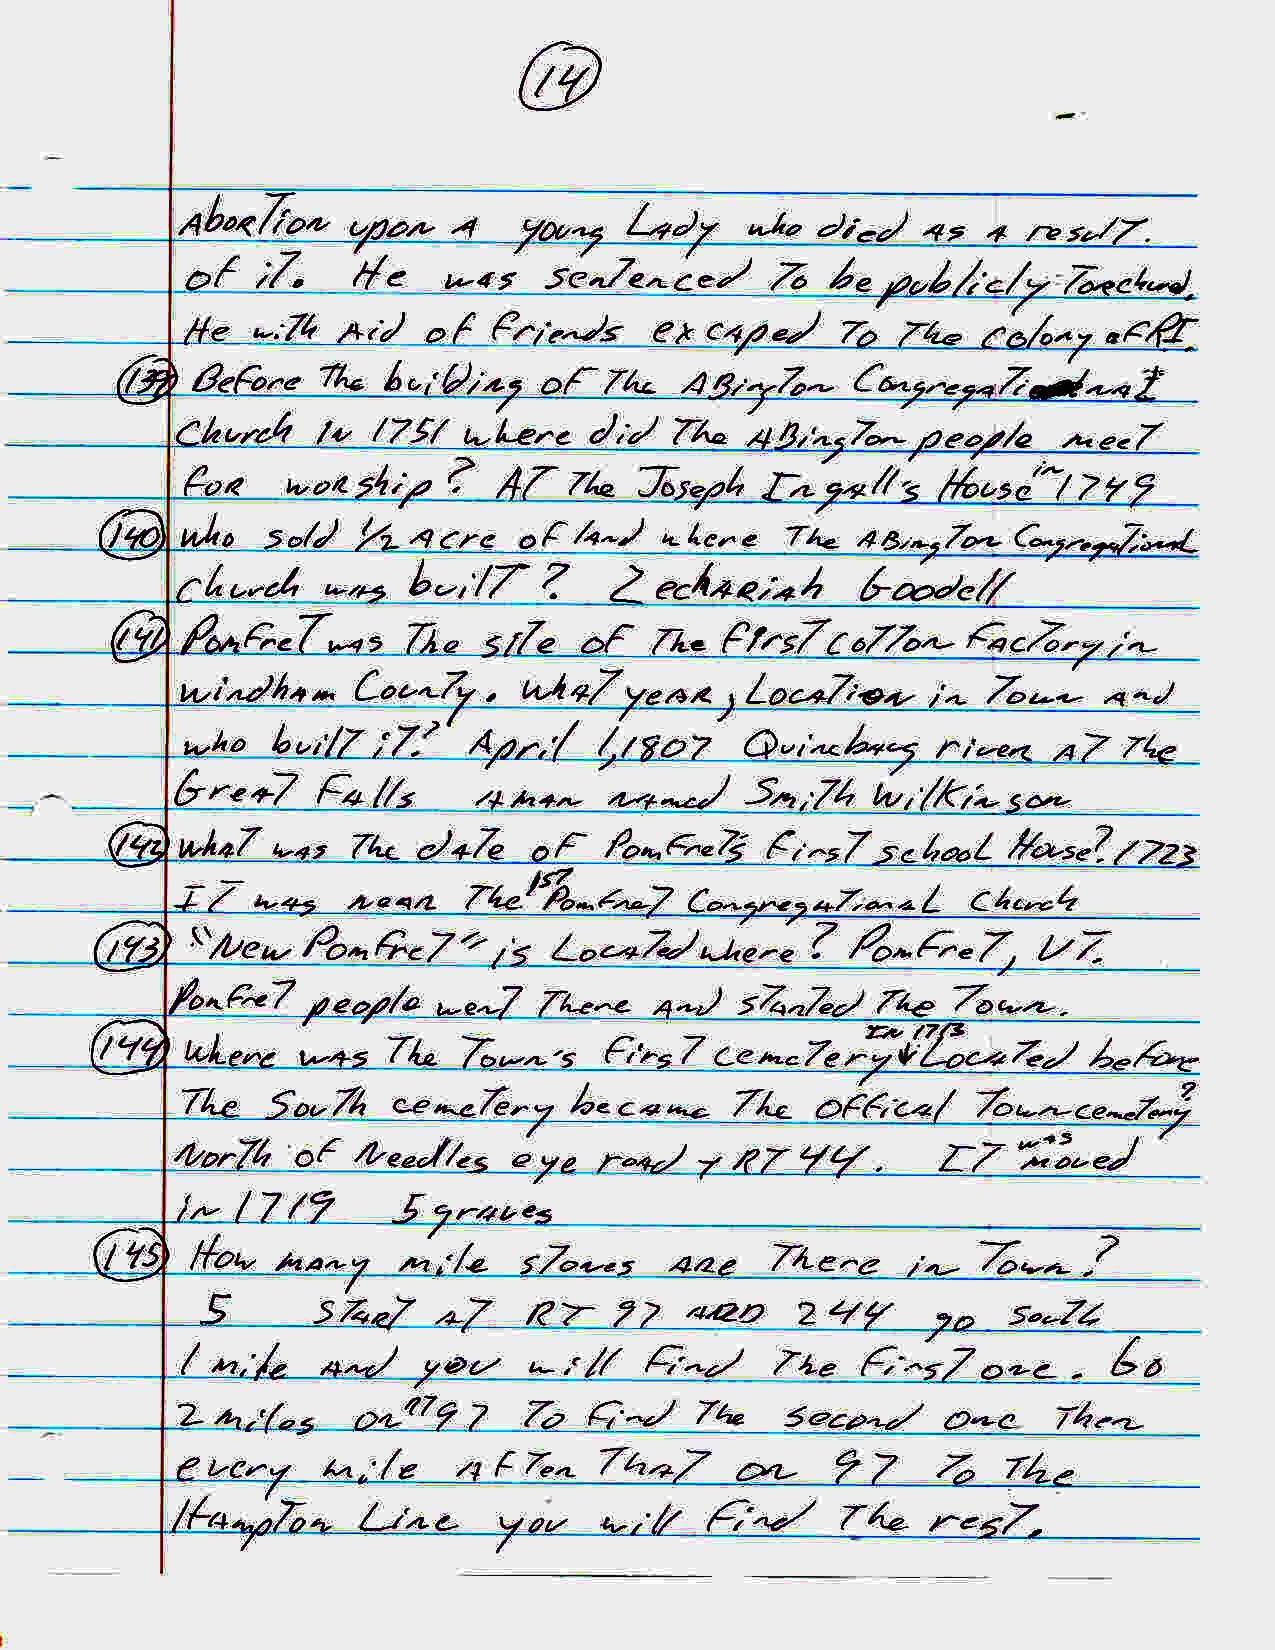 14
Abortion upon A young Lady who died as a result.
of it. He was sentenced To be publicly Torchured.
He with Aid of friends excaped To The colony of RI.
139 Before The building of The ABington Congregational
Church in 1751 where did The ABington people meet
for worship? AT The Joseph Ingall's House in 1749
140 Who sold 1/2 Acre of land where The ABington Congregational
church was built? Zechariah Goodell
141 Pomfret was The site of The first cotton factory in
Windham County. What year, Location in Town and
who built it? April 1, 1807 Quinebaug river at The
Great Falls A man named Smith Wilkinson
142 What was The date of Pomfret's first school House? 1723
It was near The 1st Pomfret Congregational Church
143 "New Pomfret" is Located where? Pomfret, VT.
Pomfret people went There and started The Town.
144 Where was The Town's first cemetery in 1713 Located before
The South cemetery became The offical Town cemetery?
North of Needles eye road + RT 44. It was moved
in 1719 5 graves
145 How many mile stones are There in Town?
5 Start at RT 97 and 244 go south
1 mile and you will find The first one. Go
2 miles on RT 97 To find The second one Then
every mile after That on 97 To The
Hampton Line you will find The rest.